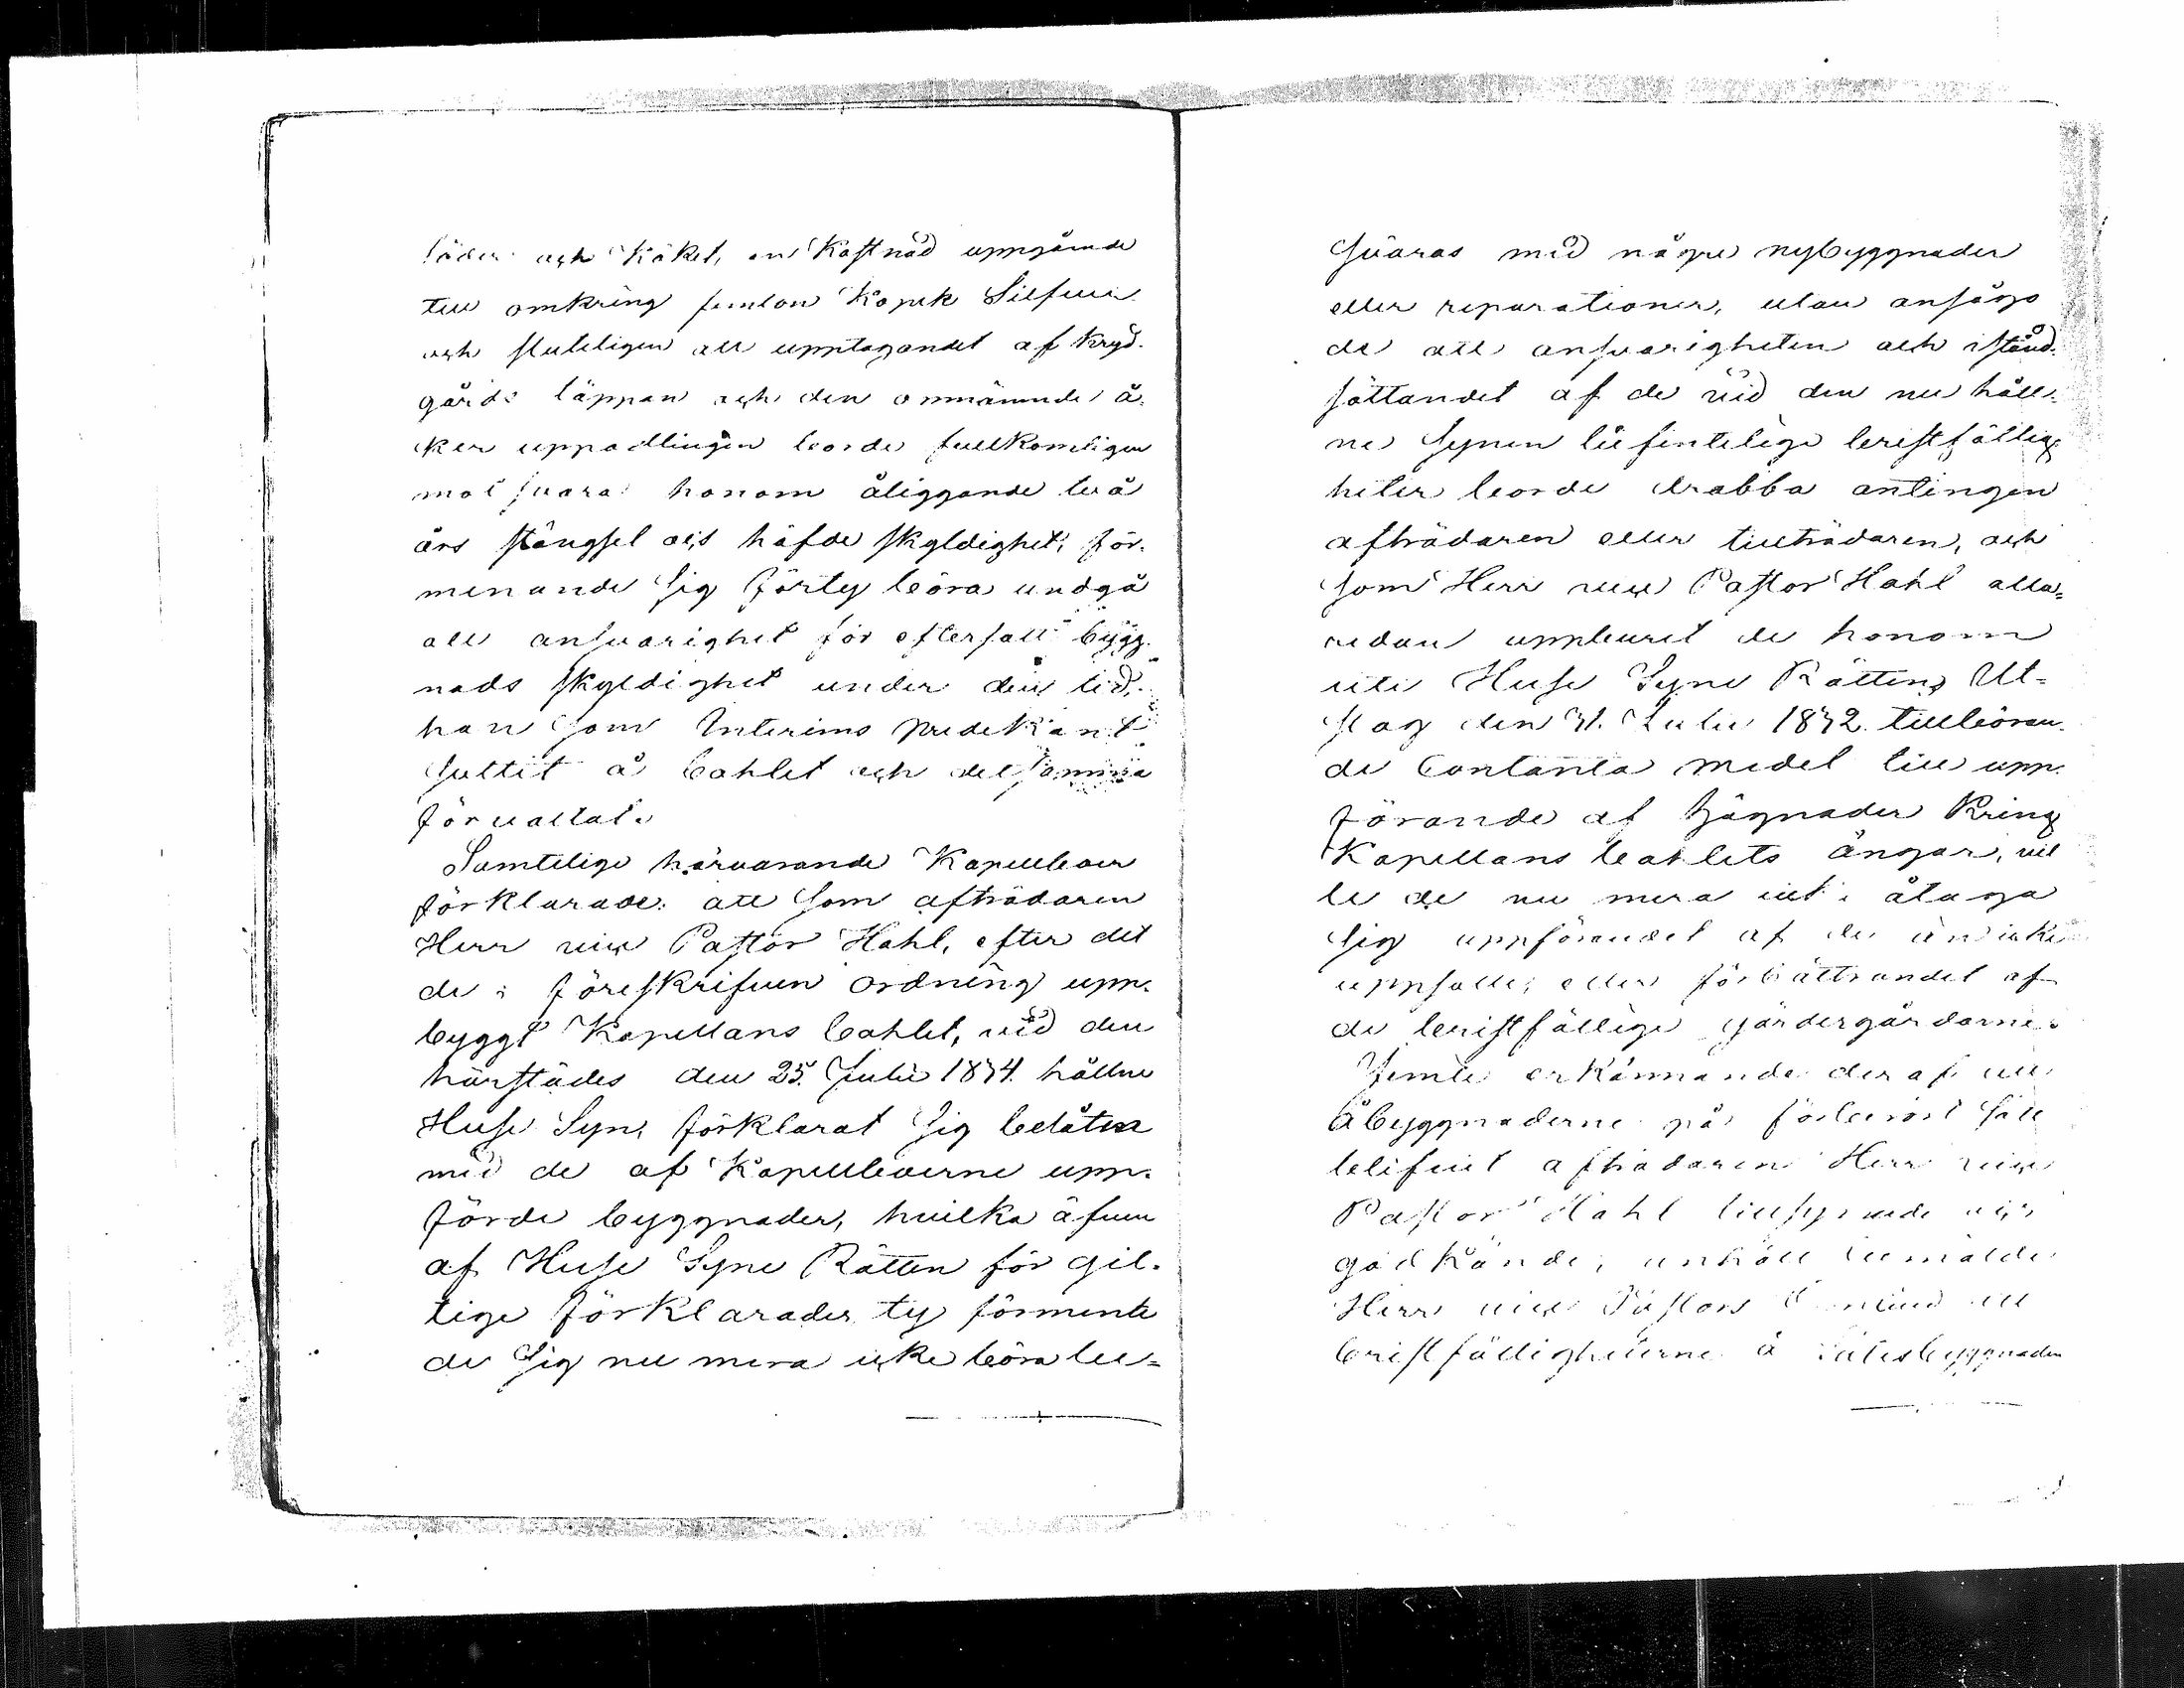 läder och Köket, en Kostnad uppgående
till omkring femton Kopek Silfver
och sluteligen att upptagandet af Kryd-
gårds täppan och den omnämnde å-
ker uppodlingen borde fullkomligen
motsvara honom åliggande två
års stängsel och häfde skyldighet, för-
menande sig förty böra undgå
all ansvarighet för eftersatt bygg-
nads skyldighet under den tid,
han som Interims predikant
suttit å bohlet och detsamma
förvaltat.
Samtelige närvarande Kapellboer
förklarade: att som afträdaren
Herr vice Pastor Hahl, efter det
de i föreskrifven ordning upp-
byggt Kapellans bohlet, vid den
härstädes den 25. Julii 1834 hållne
Huse Syn, förklarat sig belåten
med de af Kapellboerne upp-
förde byggnader, hvilka äfven
af Huse Syne Rätten för gil-
tige förklarades ty förmente
de sig nu mera icke böra be-
svaras med någre nybyggnader
eller reparationer, utan ansågo
de att ansvarigheten och istånd-
sättandet af de vid den nu håll-
ne Synen befintelige bristfällig-
heter borde drabba antingen
afträdaren eller tillträdaren, och
som Herr vice Pastor Hahl alla-
redan uppburit de honom
uti Huse Syne Rättens Ut-
slag den 31. Julii 1832 tillböran-
de Contanta medel till upp-
förande af hägnader Kring
Kapellans bohlets ängar, vil-
le de nu mera icke åtaga
sig uppförandet af de än icke
uppsatte, eller förbättrandet af
de bristfällige gärdergårdarne.
Jemte erkännande deraf att
åbyggnaderne på förberört sätt
blifvit afträdaren Herr vice
Pastor Hahl tillsynade och
godkände, anhöll bemälde
Herr vice Pastor att
bristfälligheterne å sätesbyggnaden